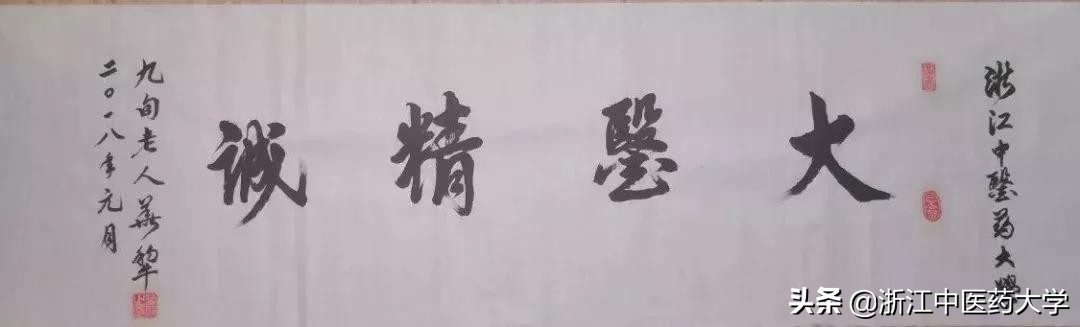 浙江中毉药大學
大毉精誠
九旬老人
二〇一八年元月
头条 @浙江中医药大学